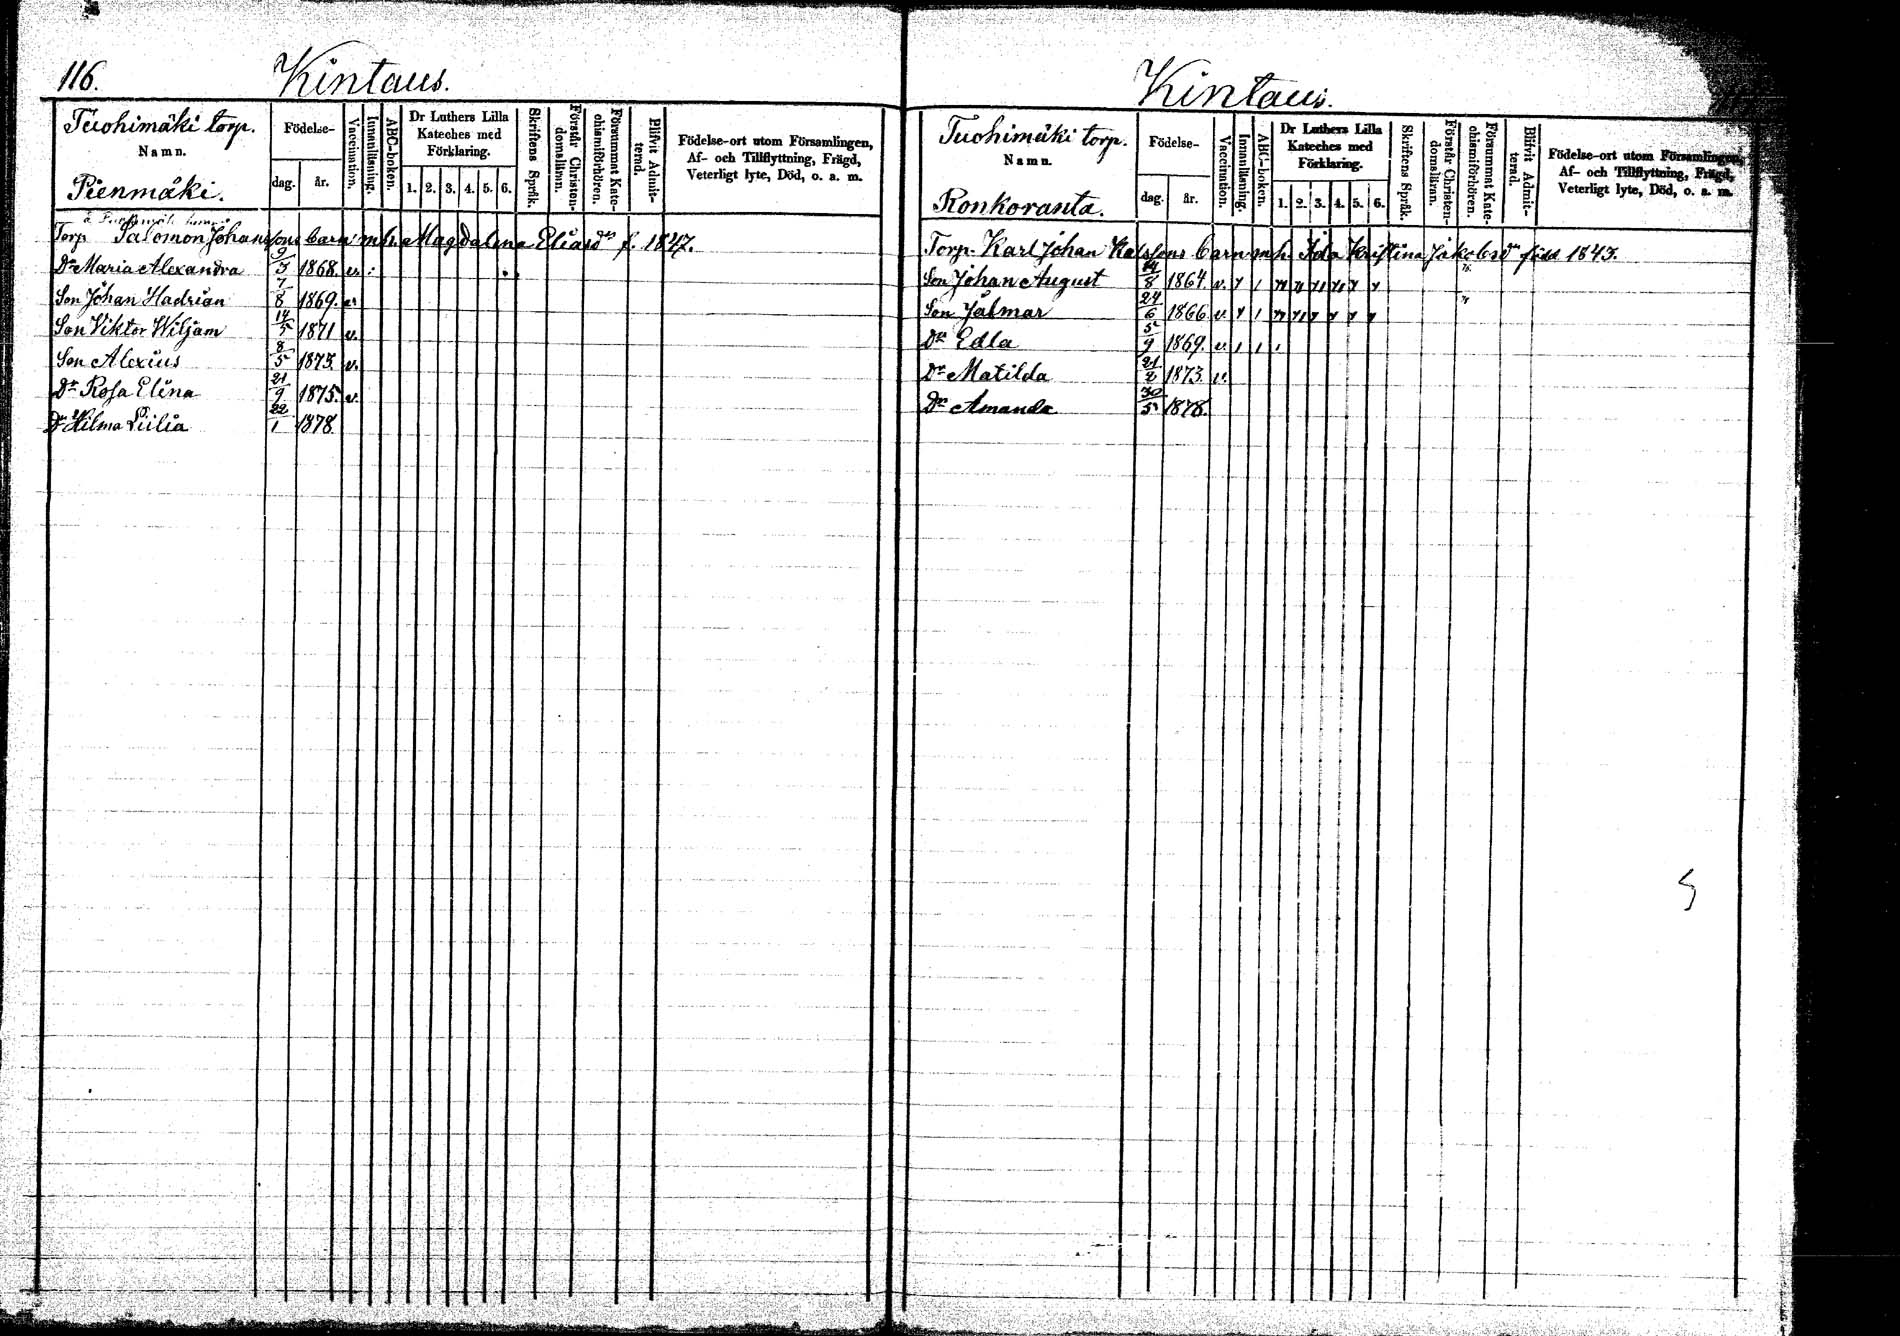 116.
Kintaus.
Tuohimäki torp.
Namn.
Pienmäki.
Födelse-
dag.
år.
Vaccination.
Innanläsning.
ABC-boken.
Dr Luthers Lilla
Kateches med
Förklaring.
1. 2. 3. 4. 5. 6.
Skriftens Språk.
Förstår Christen-
domsläran.
Försummat Kate-
chismiförhören.
Blifvit Admit-
terad.
Födelse-ort utom Församlingen,
Af- och Tillflyttning, Frägd,
Veterligt lyte, Död, o. a. m.
Torp Salomon Johanssons barn m.h. Magdalena Eliasdr f. 1847.
Dr Maria Alexandra 9/3 1868. v.
Son Johan Hadrian 7/8 1869. v.
Son Viktor Wiljam 14/5 1871 v.
Son Alexius 8/5 1873. v.
Dr Rosa Elina 21/9 1875. v.
Dr Hilma Liilia 22/1 1878.
Kintaus.
Tuohimäki torp.
Namn.
Ronkoranta.
Födelse-
dag.
år.
Vaccination.
Innanläsning.
ABC-boken.
Dr Luthers Lilla
Kateches med
Förklaring.
1. 2. 3. 4. 5. 6.
Skriftens Språk.
Förstår Christen-
domsläran.
Försummat Kate-
chismiförhören.
Blifvit Admit-
terad.
Födelse-ort utom Församlingen,
Af- och Tillflyttning, Frägd,
Veterligt lyte, Död, o. a. m.
Torp. Karl Johan Kalssons barn m.h. Ida Kristina Jakobsdr född 1843.
Son Johan August 14/8 1864. v.
Son Jalmar 24/6 1866. v.
Dr Edla 5/9 1869. v.
Dr Matilda 21/2 1873. v.
Dr Amanda 30/5 1878.